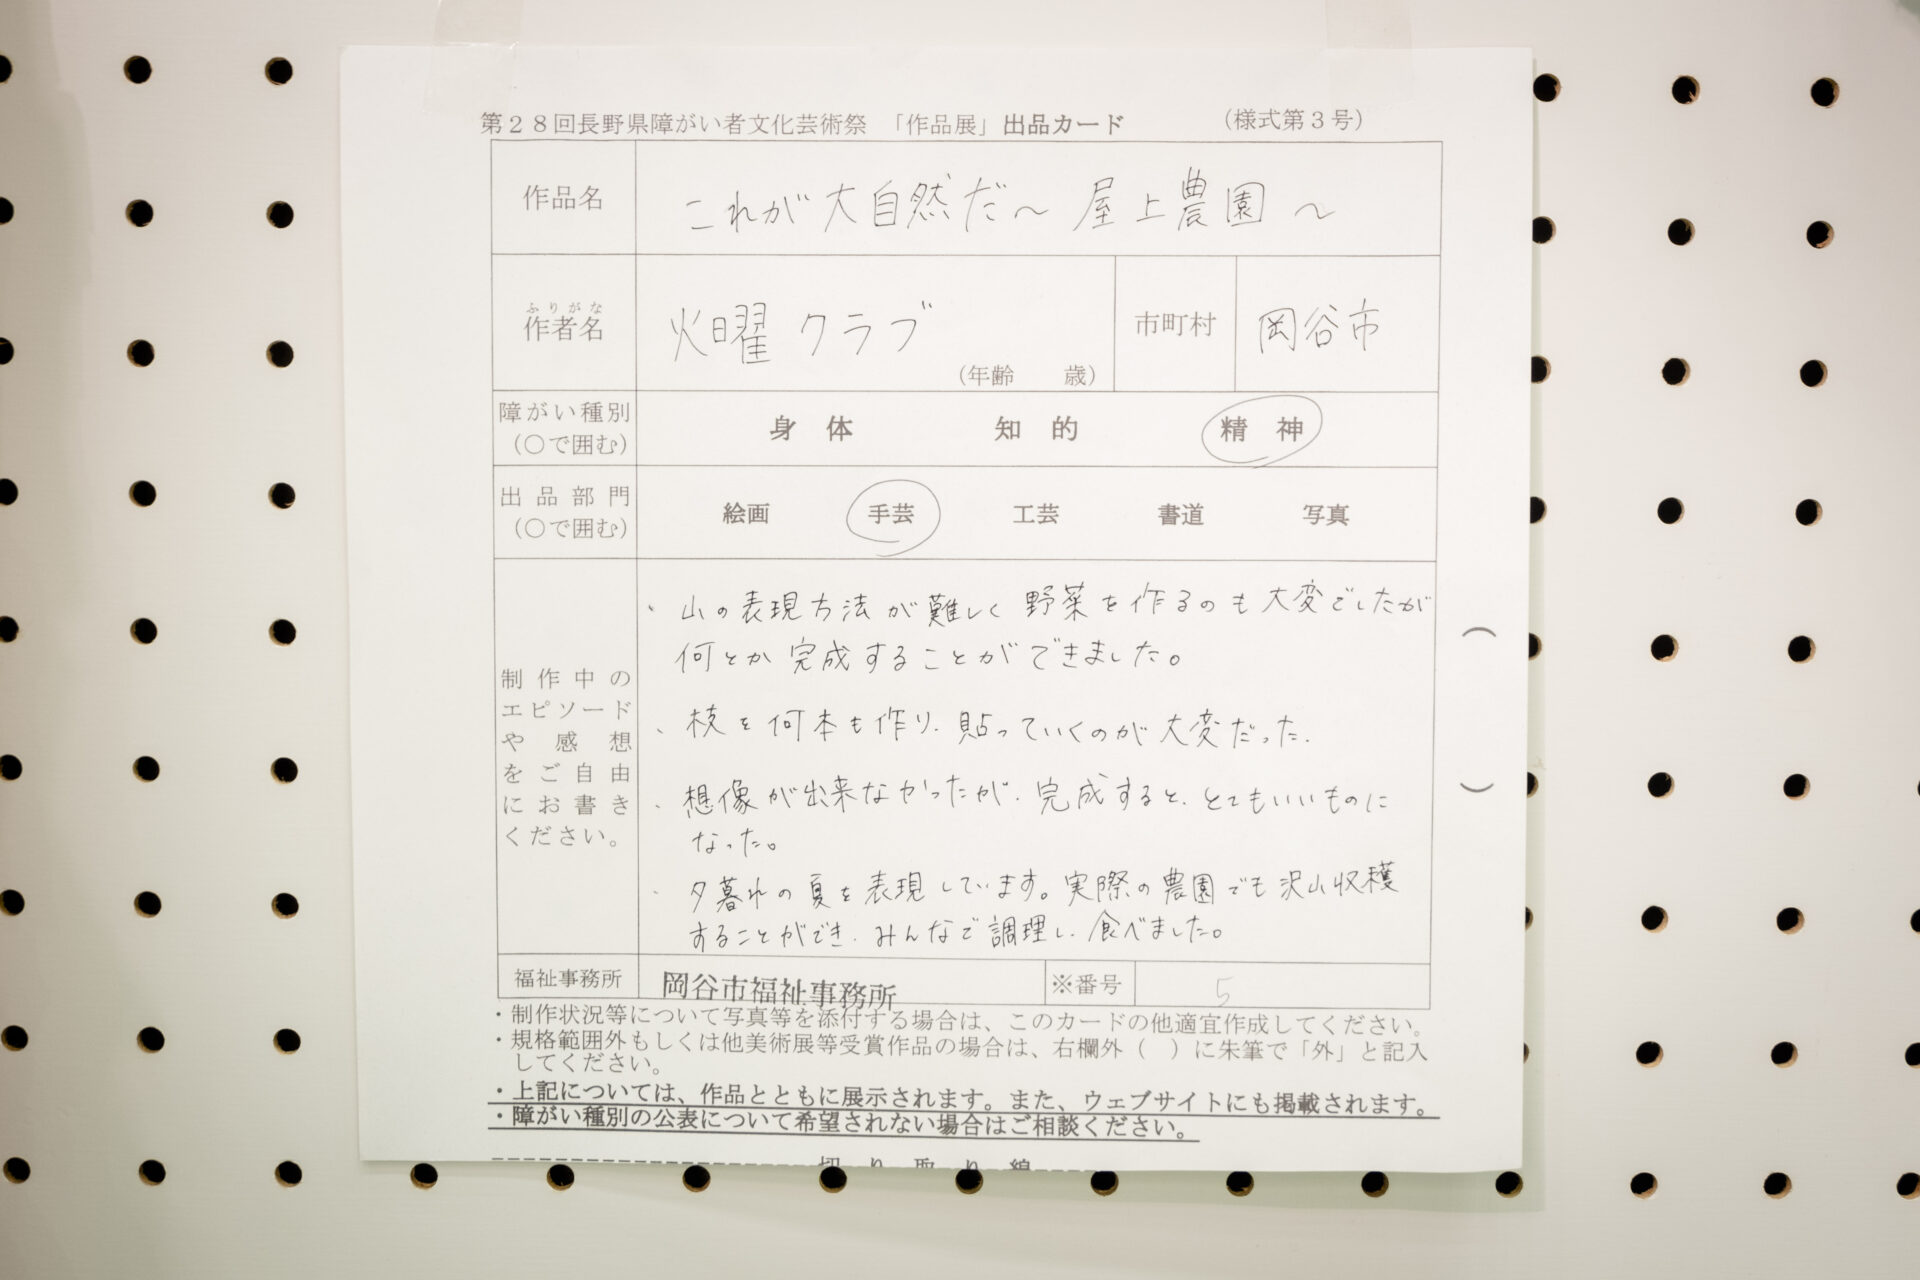 第28回長野県障がい者文化芸術祭 「作品展」出品カード (様式第3号)
作品名 これが大自然だ～屋上農園～
ふりがな
作者名 火曜クラブ (年齢 歳) 市町村 岡谷市
障がい種別 (○で囲む) 身体 知的 精神
出品部門 (○で囲む) 絵画 手芸 工芸 書道 写真
制作中の
エピソード
や感想
をご自由
にお書き
ください。
・山の表現方法が難しく野菜を作るのも大変でしたが
何とか完成することができました。
・枝を何本も作り、貼っていくのが大変だった。
・想像が出来なかったが、完成すると、とてもいいものに
なった。
・夕暮れの夏を表現しています。実際の農園でも沢山収穫
することができ、みんなで調理し、食べました。
( )
福祉事務所 岡谷市福祉事務所 ※番号 5
・制作状況等について写真等を添付する場合は、このカードの他適宜作成してください。
・規格範囲外もしくは他美術展等受賞作品の場合は、右欄外( )に朱筆で「外」と記入
してください。
・上記については、作品とともに展示されます。また、ウェブサイトにも掲載されます。
・障がい種別の公表について希望されない場合はご相談ください。
切り取り線